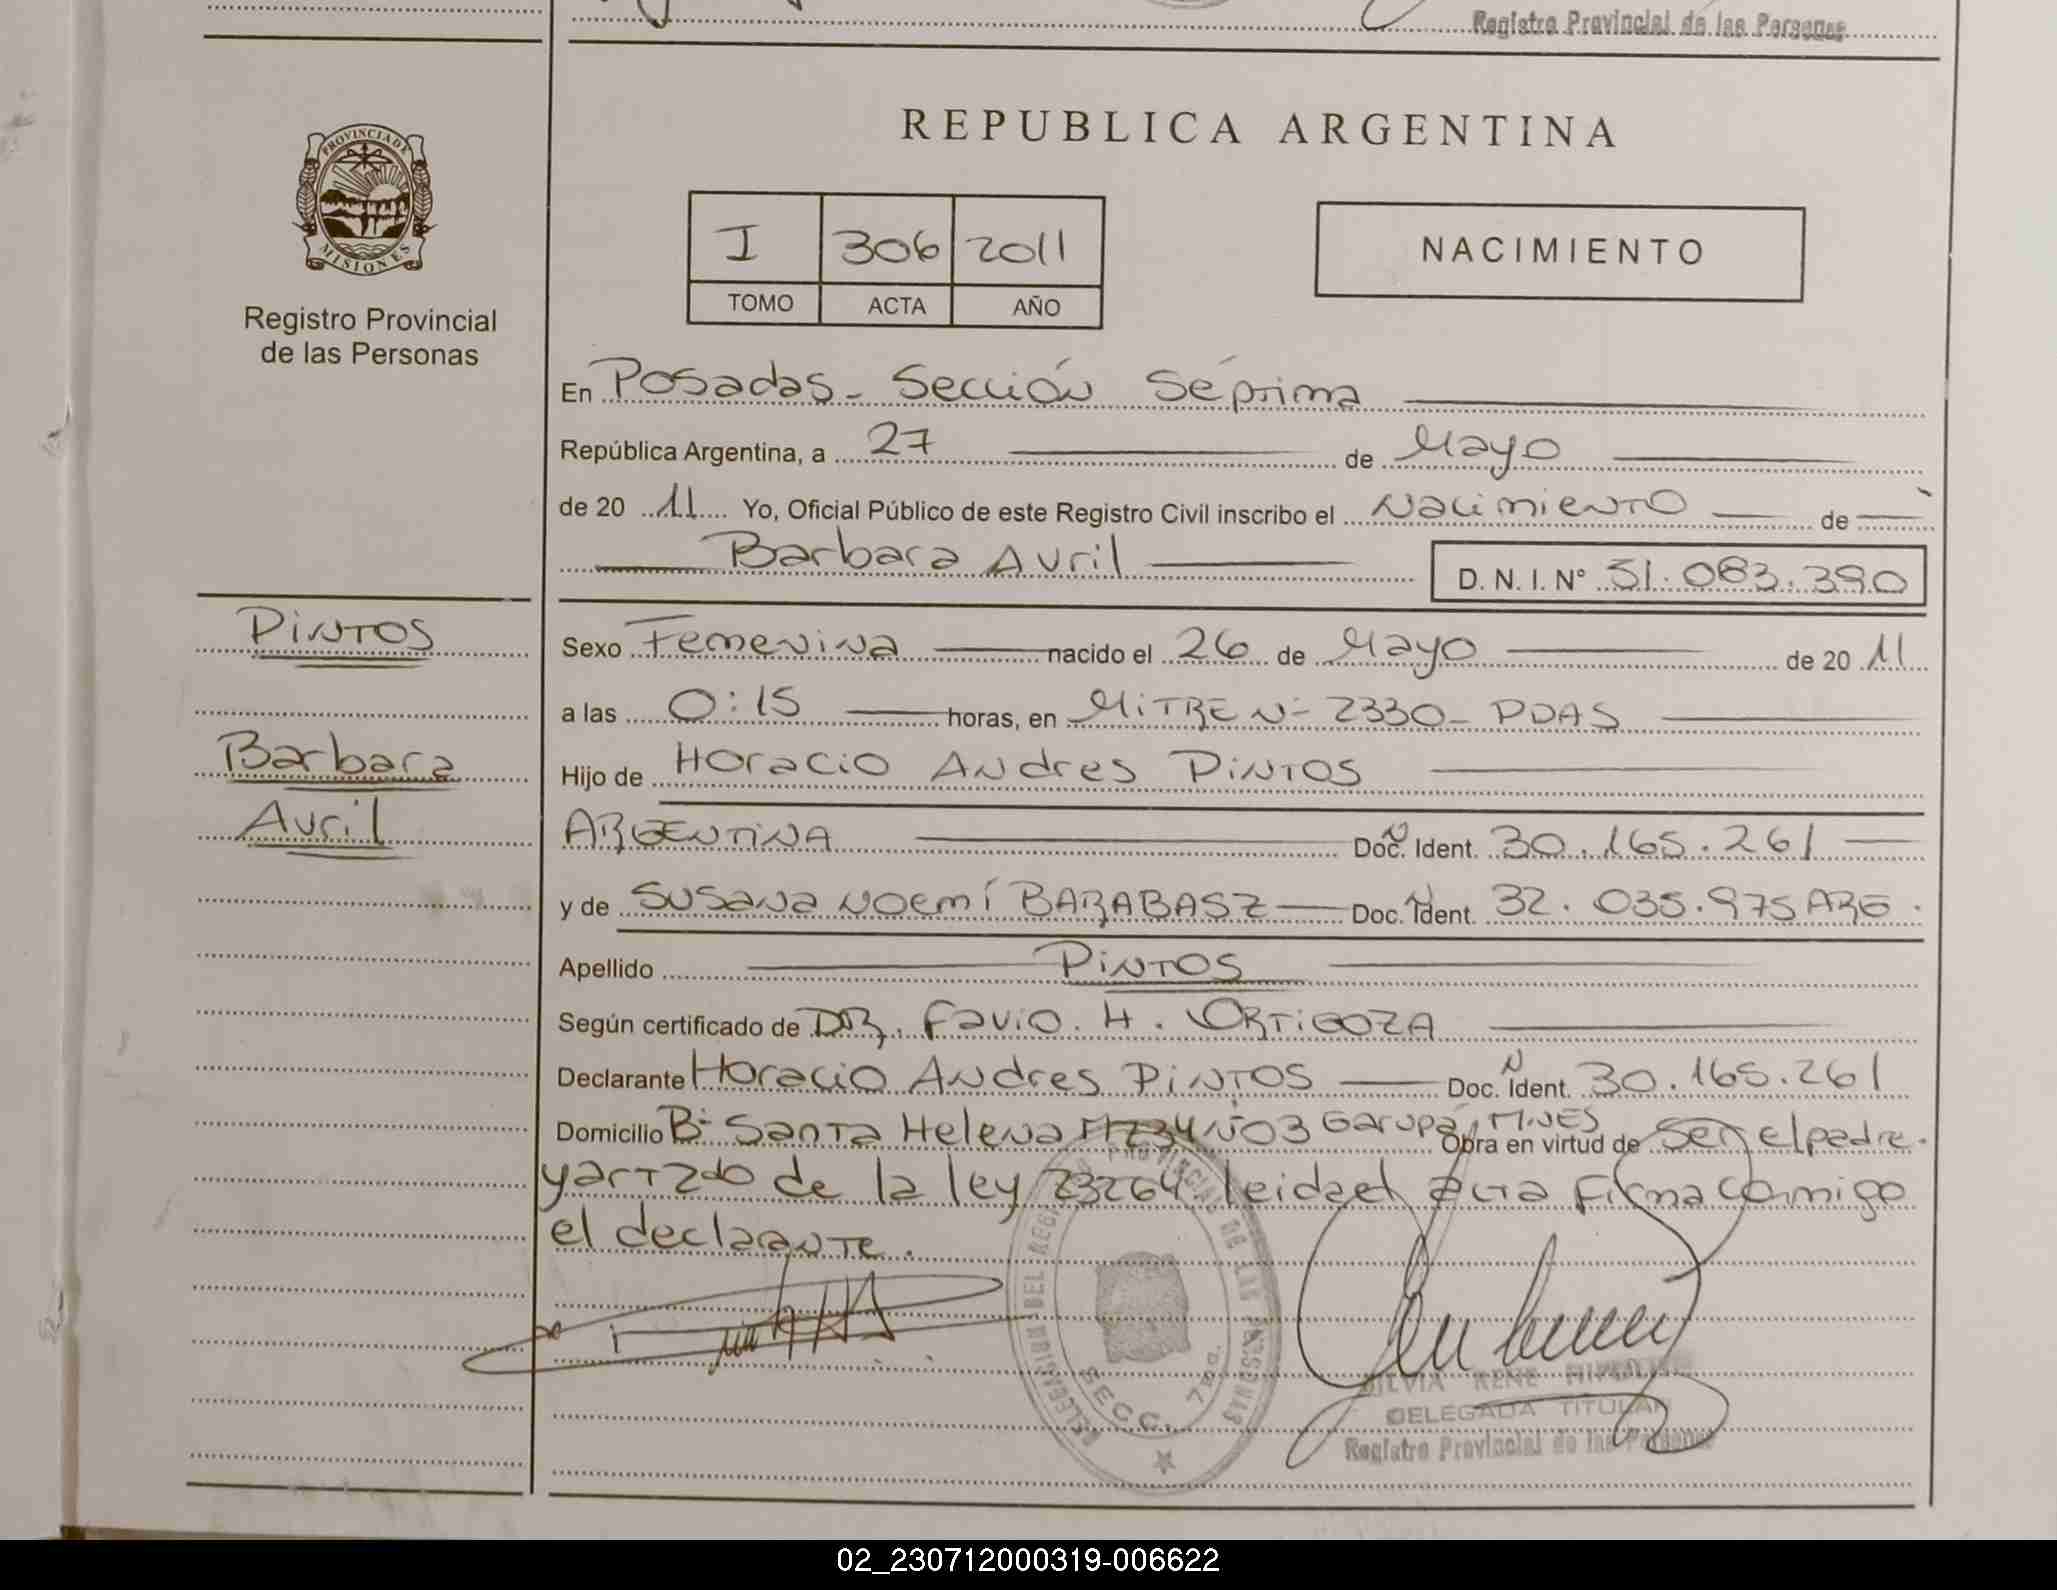 Registro Provincial de las Personas
PROVINCIA DE
MISIONES
Registro Provincial
de las Personas
REPUBLICA ARGENTINA
I 306 2011
TOMO ACTA AÑO
NACIMIENTO
En Posadas - Sección Séptima
República Argentina, a 27 de Mayo
de 20 11 Yo, Oficial Público de este Registro Civil inscribo el Nacimiento de
Barbara Avril D. N. I. N° 51.083.390
PINTOS
Barbara
Avril
Sexo Femenina nacido el 26 de Mayo de 20 11
a las 0:15 horas, en MITRE N- 2330- PDAS
Hijo de Horacio Andres PINTOS
ARGENTINA Doc. Ident. N 30.165.261
y de Susana Noemí BARABASZ Doc. Ident. N 32.035.975 ARG.
Apellido PINTOS
Según certificado de DR. Favio. H. ORTIGOZA
Declarante Horacio Andres PINTOS Doc. Ident. N 30.165.261
Domicilio B- Santa Helena MZ34 N03 Garupá, MNES Obra en virtud de Ser el padre.
y art 2do de la ley 23264 leida el acta firma conmigo
el declarante.
DELEGACION DEL REGISTRO PROVINCIAL DE LAS PERSONAS
SECC. 7ma.
SILVIA RENE
DELEGADA TITULAR
Registro Provincial de las Personas
02_230712000319-006622